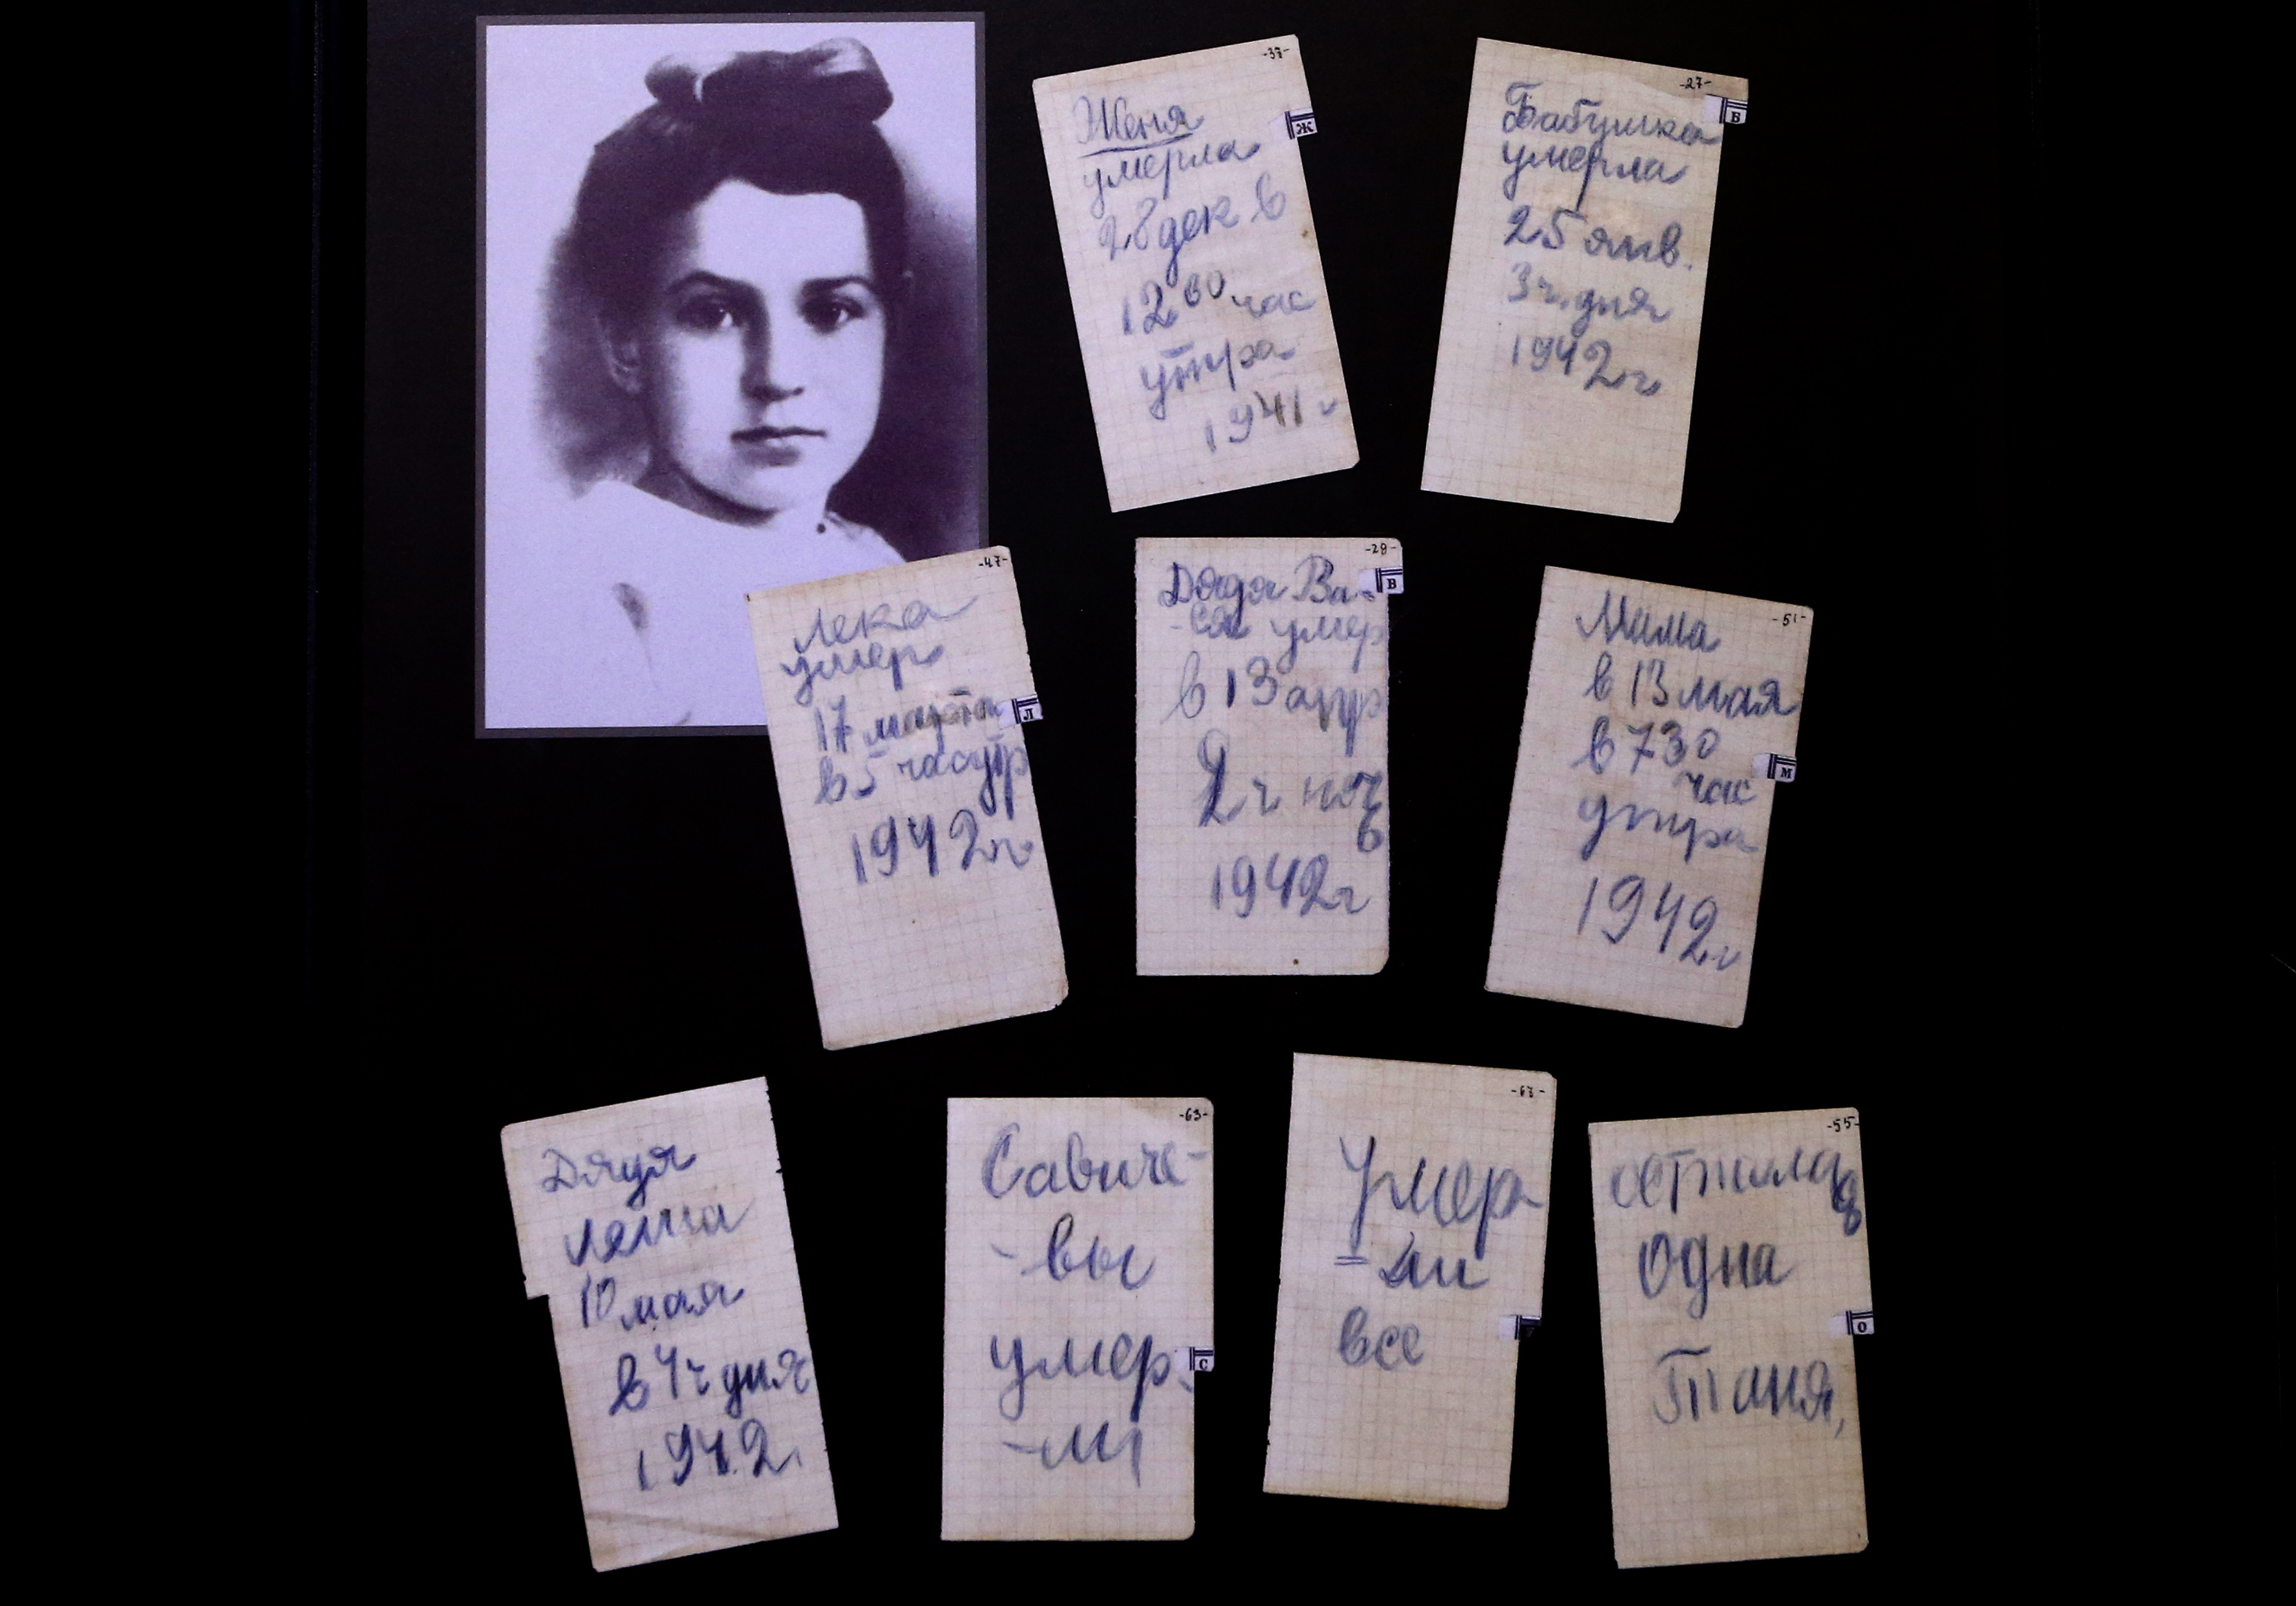 -37-
Женя
Ж
умерла
28 дек в
12.00 час
утра
1941 г
-27-
Бабушка
В
умерла
25 янв.
3 ч. дня
1942 г.
-47-
Лека
умер
17 марта
Л
в 5 час утр
1942 г.
-29-
Дядя Ва-
В
-ся умер
в 13 апр
2 ч ноч
ь
1942 г
-51-
Мама
в 13 мая
в 7.30
М
час
утра
1942 г
Дядя
Леша
10 мая
в 4 ч дня
1942.
-63-
Савиче-
-вы
умер-
С
-ли
-67-
Умер
=ли
все
-55-
осталас
ь
одна
О
Таня,